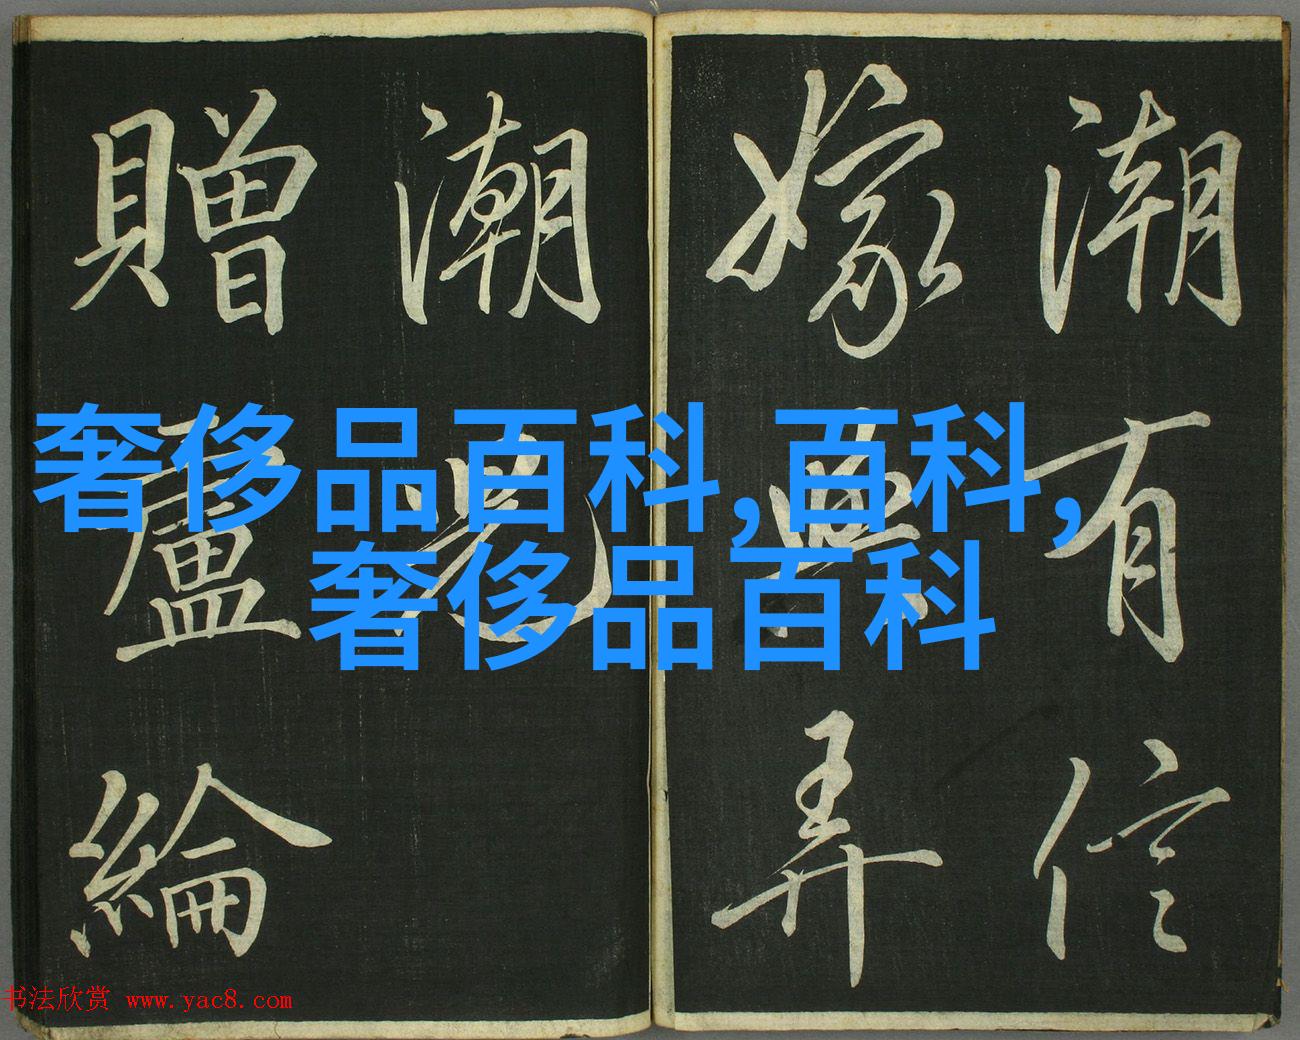 潮有信
嫁與弄
潮兒
贈盧綸
奢侈品百科,百科,
奢侈品百科
书法欣赏 www.yac8.com